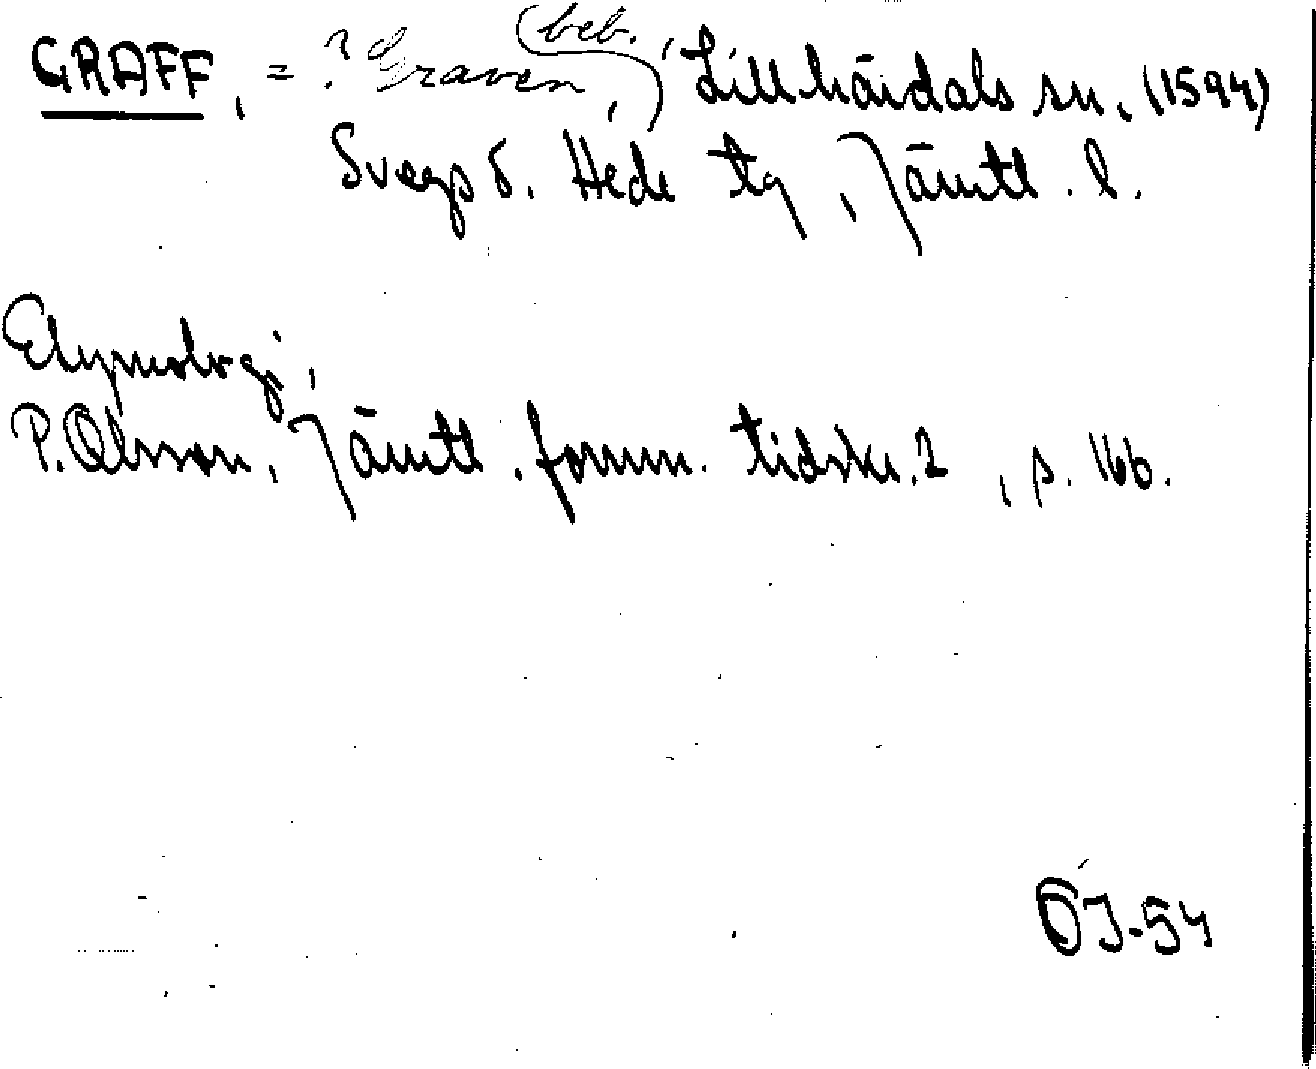 GRAFF, = ? Graven, beb., Lillhärdals sn. (1594)
Svegs o. Hede tg, Jämtl. l.
Etymologi,
P. Olsson, Jämtl. fornm. tidskr. 2, s. 166.
ÖJ-54